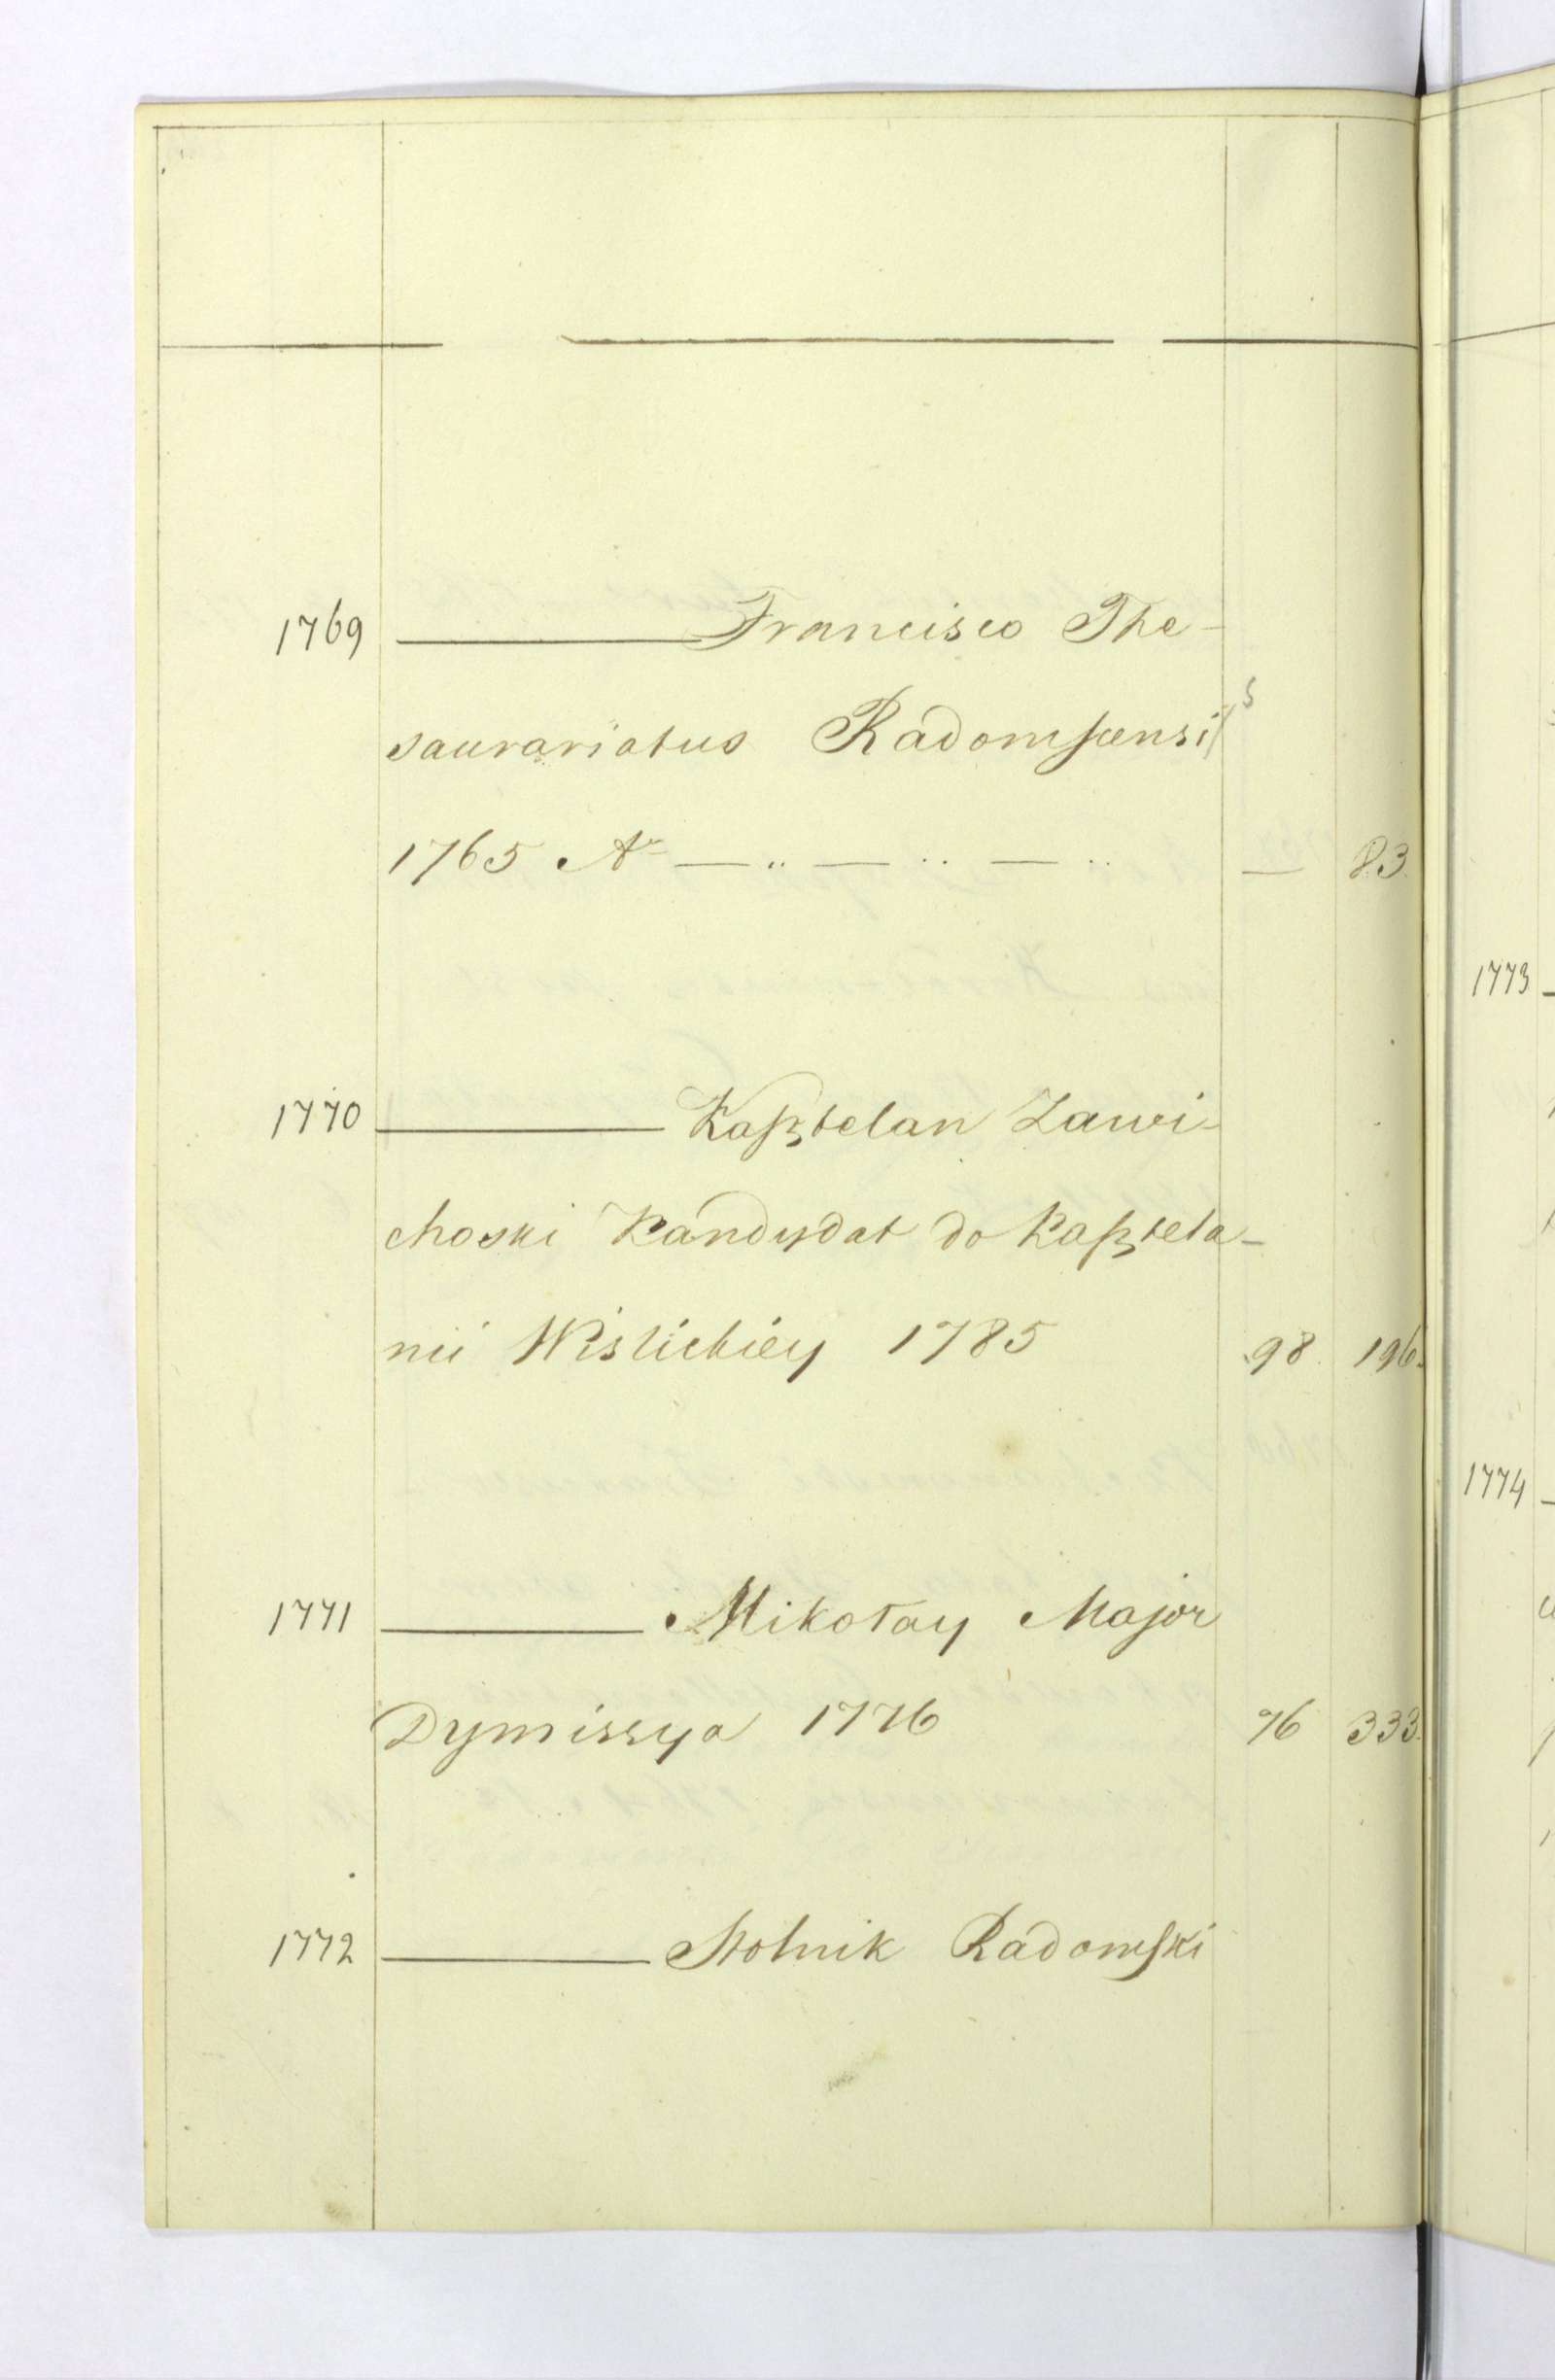 1769 ——— Francisco The-
saurariatus Radomscensis
1765 Ao — „ — „ — „ — 83.
1770 ——— Kaßztelan Zawi-
choski Kandydat do Kaßztela-
nii Wislickiéy 1785 98. 196.
1773
1774
1771 ——— Mikołay Major
Dymissya 1776 76 333.
1772 ——— Stolnik Radomski